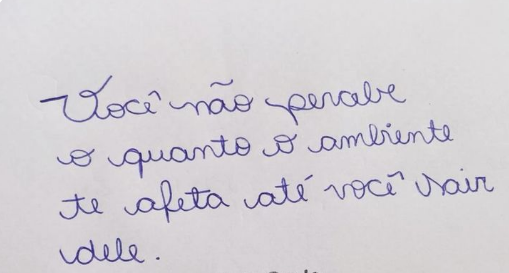 Você não percebe
o quanto o ambiente
te afeta até você sair
dele.